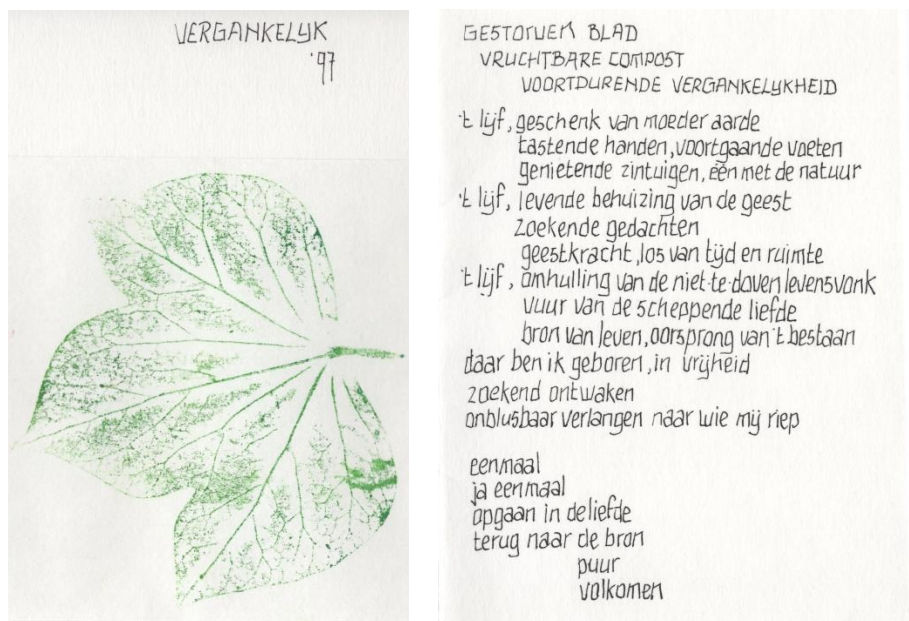 VERGANKELIJK
'97
GESTORVEN BLAD
VRUCHTBARE COMPOST
VOORTDURENDE VERGANKELIJKHEID
't lijf, geschenk van moeder aarde
tastende handen, voortgaande voeten
genietende zintuigen, één met de natuur
't lijf, levende behuizing van de geest
zoekende gedachten
geestkracht, los van tijd en ruimte
't lijf, omhulling van de niet-te-doven levensvonk
vuur van de scheppende liefde
bron van leven, oorsprong van 't bestaan
daar ben ik geboren, in vrijheid
zoekend ontwaken
onblusbaar verlangen naar wie mij riep
eenmaal
ja eenmaal
opgaan in de liefde
terug naar de bron
puur
volkomen